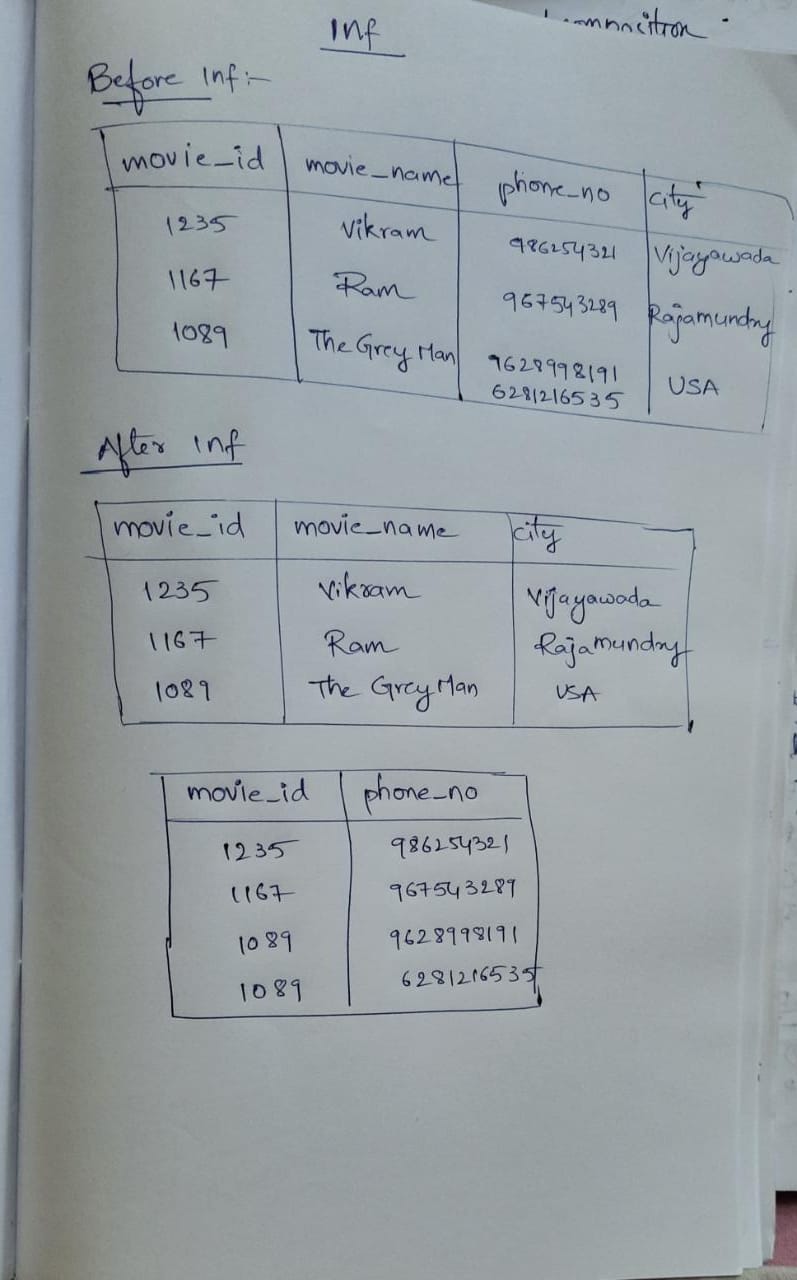 1nf
Before 1nf :-
movie_id movie_name phone_no city
1235 Vikram 986254321 Vijayawada
1167 Ram 967543289 Rajamundry
1089 The Grey Man 9628998191 USA
6281216535
After 1nf
movie_id movie_name city
1235 Vikram Vijayawada
1167 Ram Rajamundry
1089 The Grey Man USA
movie_id phone_no
1235 986254321
1167 967543289
1089 9628998191
1089 6281216535